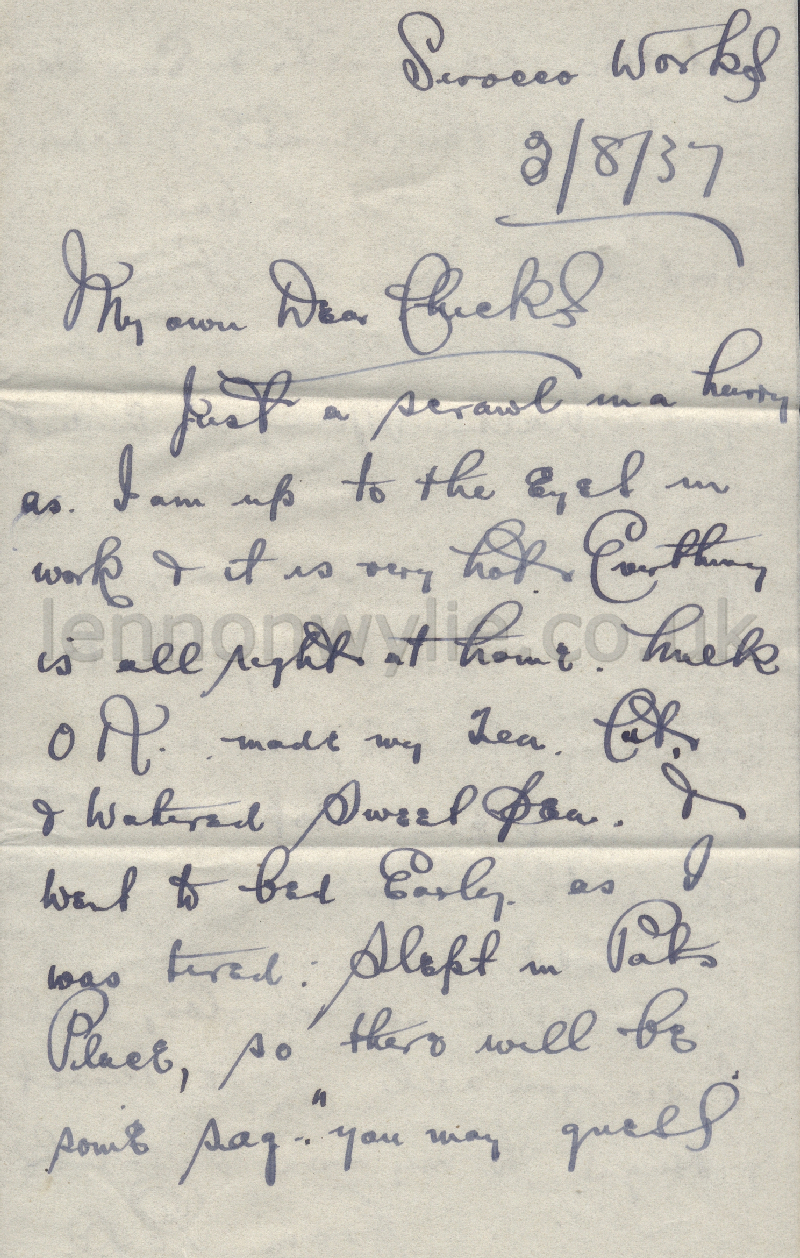 Sirocco Works
3/8/37
My own Dear Chicks
Just a scrawl in a hurry,
as. I am up to the Eyes in
work & it is very hot. Everthing
is all right at home.
lennonwylie.co.uk
O K. made my Tea. Cut,
& Watered Sweet Pea. &
went to bed Early. as I
was tired. Slept in Pats
Place, so there will be
some sag. "you may guess